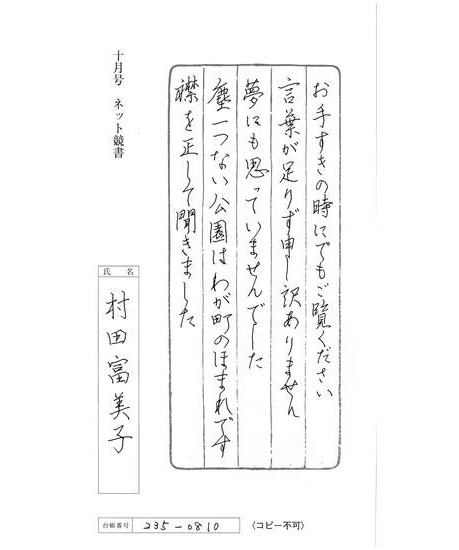 お手すきの時にでもご覧ください
言葉が足りず申し訳ありません
夢にも思っていませんでした
塵一つない公園はわが町のほまれです
襟を正して聞きました
十月号 ネット競書
氏名
村田富美子
台帳番号 235-0810 〈コピー不可〉